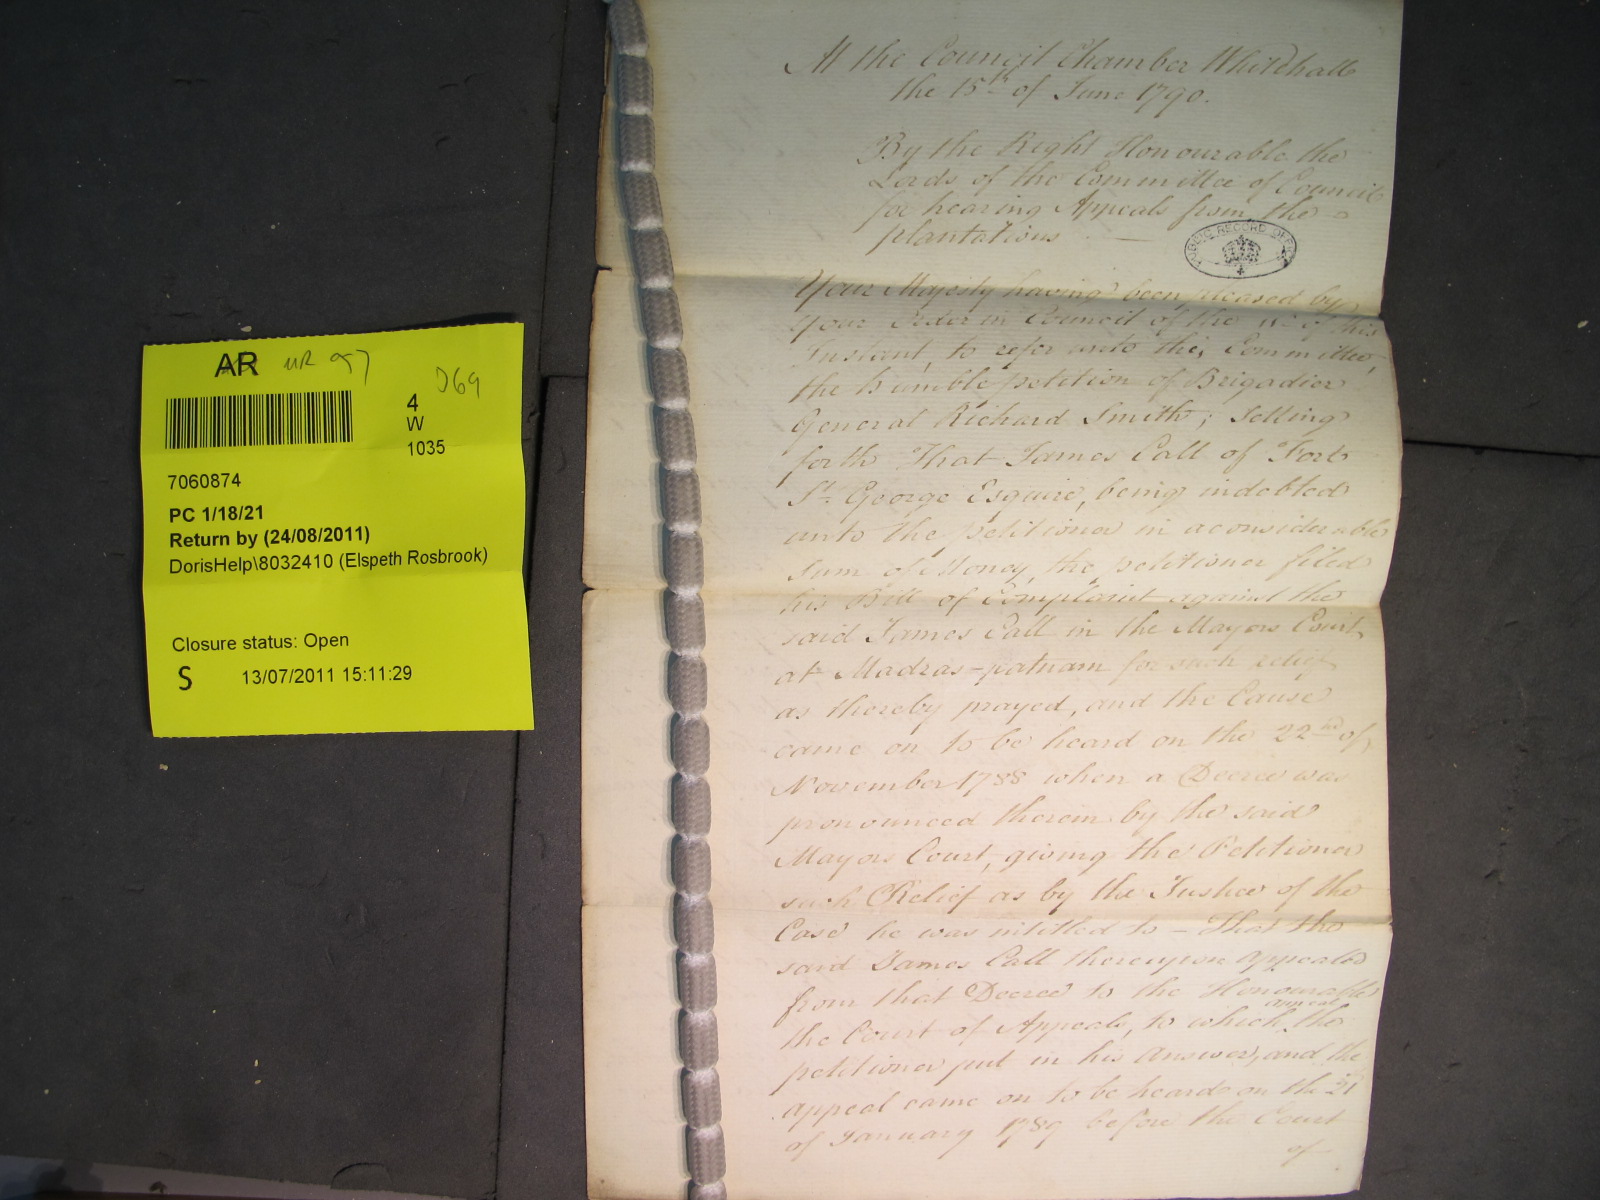 AR MR 957
369
4
W
1035
7060874
PC 1/18/21
Return by (24/08/2011)
DorisHelp\8032410 (Elspeth Rosbrook)
Closure status: Open
S 13/07/2011 15:11:29
At the Council Chamber Whitehall
the 15th of June 1790.
By the Right Honourable the
Lords of the Committee of Council
for hearing Appeals from the
plantations
PUBLIC RECORD OFFICE
Your Majesty having been pleased by
your Order in Council of the of this
Instant to refer unto this Committee,
the humble petition of Brigadier
General Richard Smith; Setting
forth That James Call of Fort
St. George Esquire, being indebted
unto the petitioner in a considerable
Sum of Money, the petitioner filed
his Bill of Complaint against the
said James Call in the Mayors Court,
at Madras-patnam for such relief
as thereby prayed, and the Cause
came on to be heard on the 22nd of
November 1788 when a Decree was
pronounced therein by the said
Mayors Court, giving the Petitioner
such Relief as by the Justice of the
Case he was intitled to - That the
said James Call thereupon appealed
from that Decree to the Honourable
the Court of Appeals, to which appeal the
petitioner put in his Answer, and the
appeal came on to be heard on the 31
of January 1789 before the Court
of